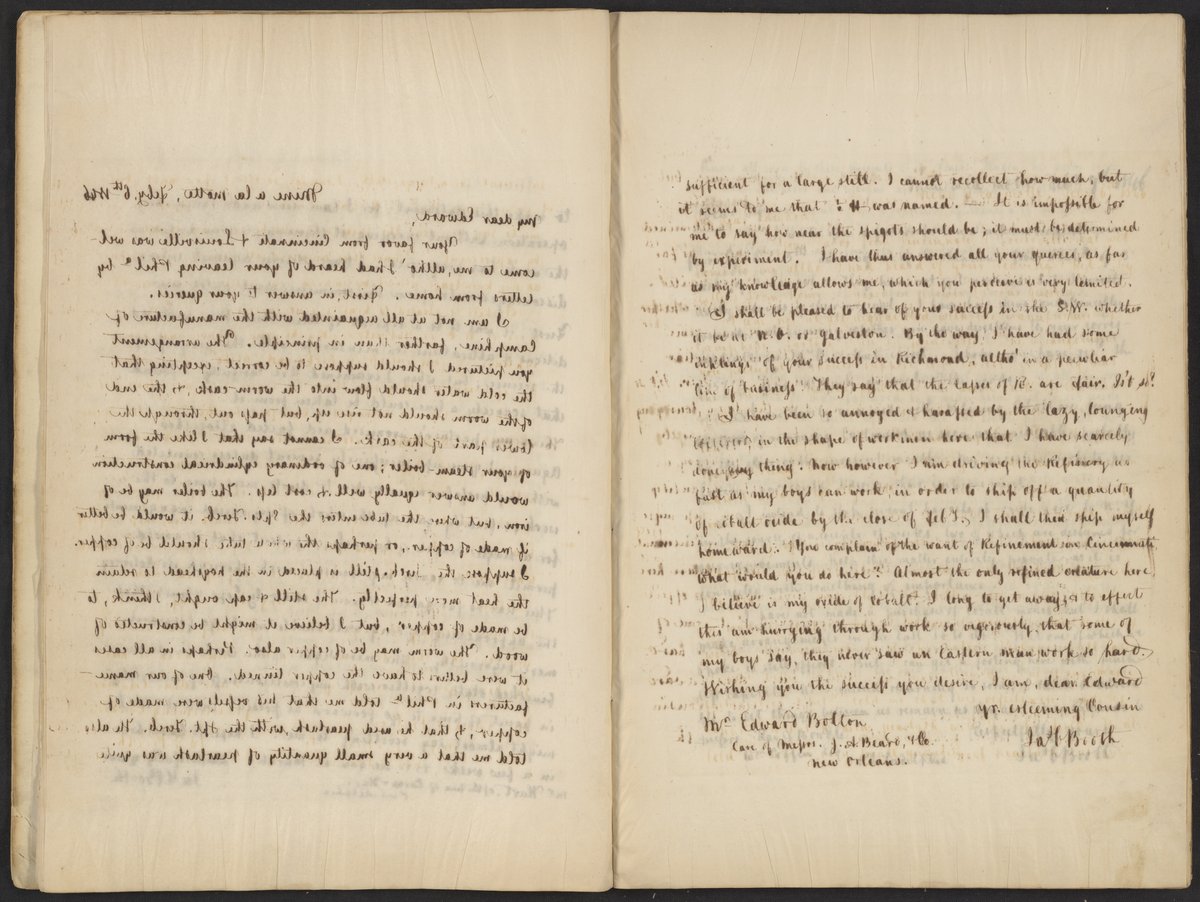 Mine a la motte, Feby. 6th 1846
My dear Edward,
Your favor from Cincinnati & Louisville was wel-
come to me, altho' I had heard of your leaving Phila by
letters from home. First, in answer to your queries.
I am not at all acquainted with the manufacture of
Camphine, farther than in principle. The arrangement
you pictured I should suppose to be correct, excepting that
the cold water should flow into the worm-cask, & the end
of the worm should not rise up, but pass out through the
lower part of the cask. I cannot say that I like the form
of your steam-boiler; one of ordinary cylindrical construction
would answer equally well & cost less. The boiler may be
iron, but where the tube enters the Spts. Turb. it would be better
if made of copper, or perhaps the whole tube should be of copper.
I suppose the still is placed in the hogshead to retain
the heat more perfectly. The still & cap ought, I think, to
be made of copper, but I believe it might be constructed of
wood. The worm may be of copper also. Perhaps in all cases
it were better to have the copper tinned. One of our manu-
facturers in Phila told me that his vessels were made of
copper, & that he used pearlash with the Spt. Turb. He also
told me that a very small quantity of pearlash was quite
sufficient for a large still. I cannot recollect how much, but
it seems to me that was named. — It is impossible for
me to say how near the spigots should be; it must be determined
by experiment. I have thus answered all your queries, as far
as my knowledge allows me, which you perceive is very limited.
I shall be pleased to hear of your success in the S.W. whether
it be at N.O. or Galveston. By the way, I have had some
inklings of your success in Richmond, altho' in a peculiar
line of business. They say that the lasses of R. are fair. Is't so?
I have been so annoyed & harassed by the lazy, lounging
in the shape of workmen here that I have scarcely
done any thing. Now however I am driving the Refinery as
fast as my boys can work, in order to ship off a quantity
of cobalt oxide by the close of Feby. I shall then ship myself
homeward. You complain of the want of Refinement in Cincinnati,
what would you do here? Almost the only refined creature here,
I believe is my oxide of cobalt. I long to get away, & to effect
this am hurrying through work so vigorously, that some of
my boys say, they never saw an Eastern man work so hard.
Wishing you the success you desire, I am, dear Edward
yr. esteeming Cousin
Jas. Booth
Mr. Edward Bolton
Care of Messrs. J. A. Beard, & Co.
New Orleans.